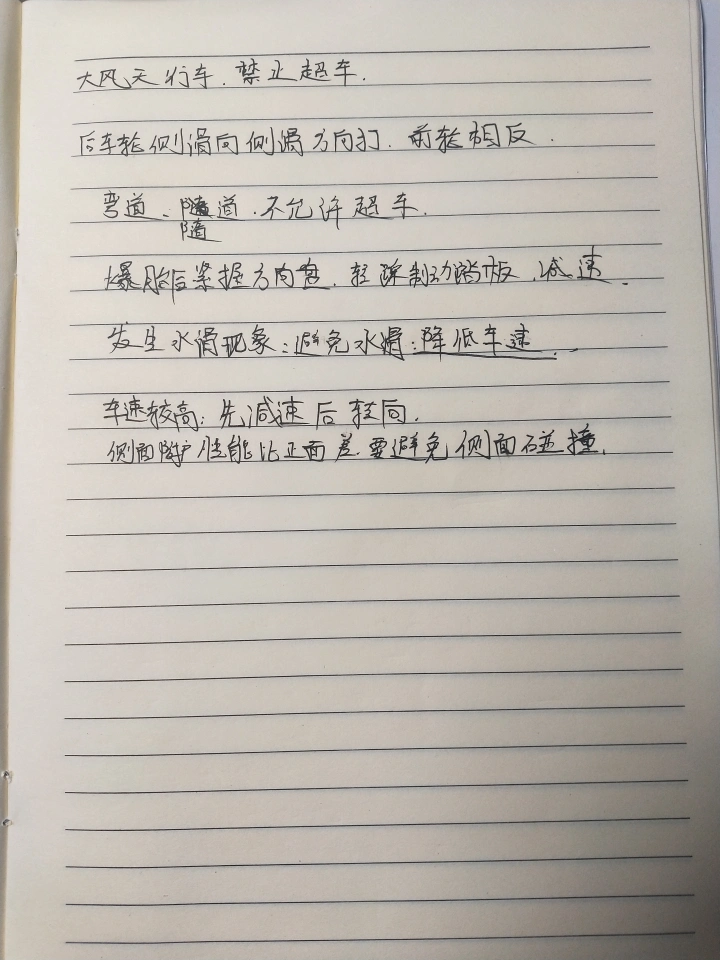 大风天行车.禁止超车.
后车轮侧滑向侧滑方向打.前轮相反.
弯道、隨道.不允许超车.
隨
爆胎后紧握方向盘.轻踩制动踏板.减速.
发生水滑现象:避免水滑:降低车速...
车速较高:先减速后转向.
侧面防护性能比正面差.要避免侧面碰撞.